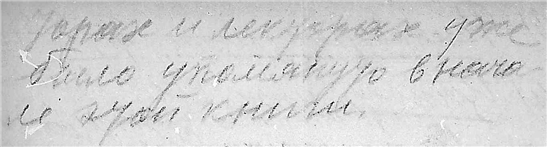 горах и лекуррах уже
было упомянуто в нача
ле этой книги.